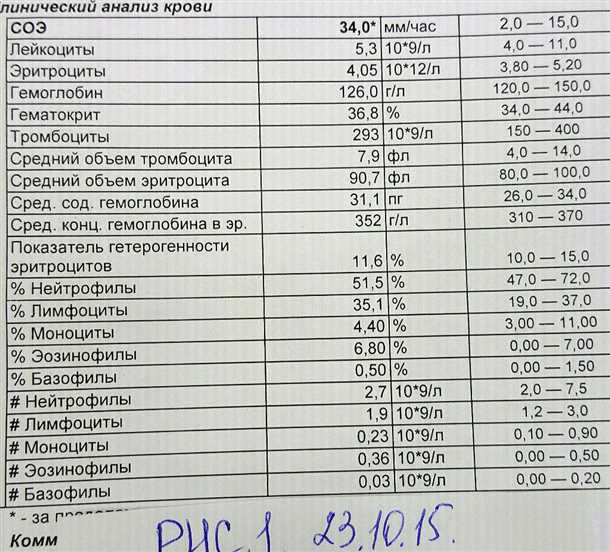 клинический анализ крови
СОЭ 34,0* мм/час 2,0 — 15,0
Лейкоциты 5,3 10*9/л 4,0 — 11,0
Эритроциты 4,05 10*12/л 3,80 — 5,20
Гемоглобин 126,0 г/л 120,0 — 150,0
Гематокрит 36,8 % 34,0 — 44,0
Тромбоциты 293 10*9/л 150 — 400
Средний объем тромбоцита 7,9 фл 4,0 — 14,0
Средний объем эритроцита 90,7 фл 80,0 — 100,0
Сред. сод. гемоглобина 31,1 пг 26,0 — 34,0
Сред. конц. гемоглобина в эр. 352 г/л 310 — 370
Показатель гетерогенности
эритроцитов 11,6 % 10,0 — 15,0
% Нейтрофилы 51,5 % 47,0 — 72,0
% Лимфоциты 35,1 % 19,0 — 37,0
% Моноциты 4,40 % 3,00 — 11,00
% Эозинофилы 6,80 % 0,00 — 7,00
% Базофилы 0,50 % 0,00 — 1,50
# Нейтрофилы 2,7 10*9/л 2,0 — 7,5
# Лимфоциты 1,9 10*9/л 1,2 — 3,0
# Моноциты 0,23 10*9/л 0,10 — 0,90
# Эозинофилы 0,36 10*9/л 0,00 — 0,50
# Базофилы 0,03 10*9/л 0,00 — 0,20
* - за
Комм РИС.1 23.10.15.